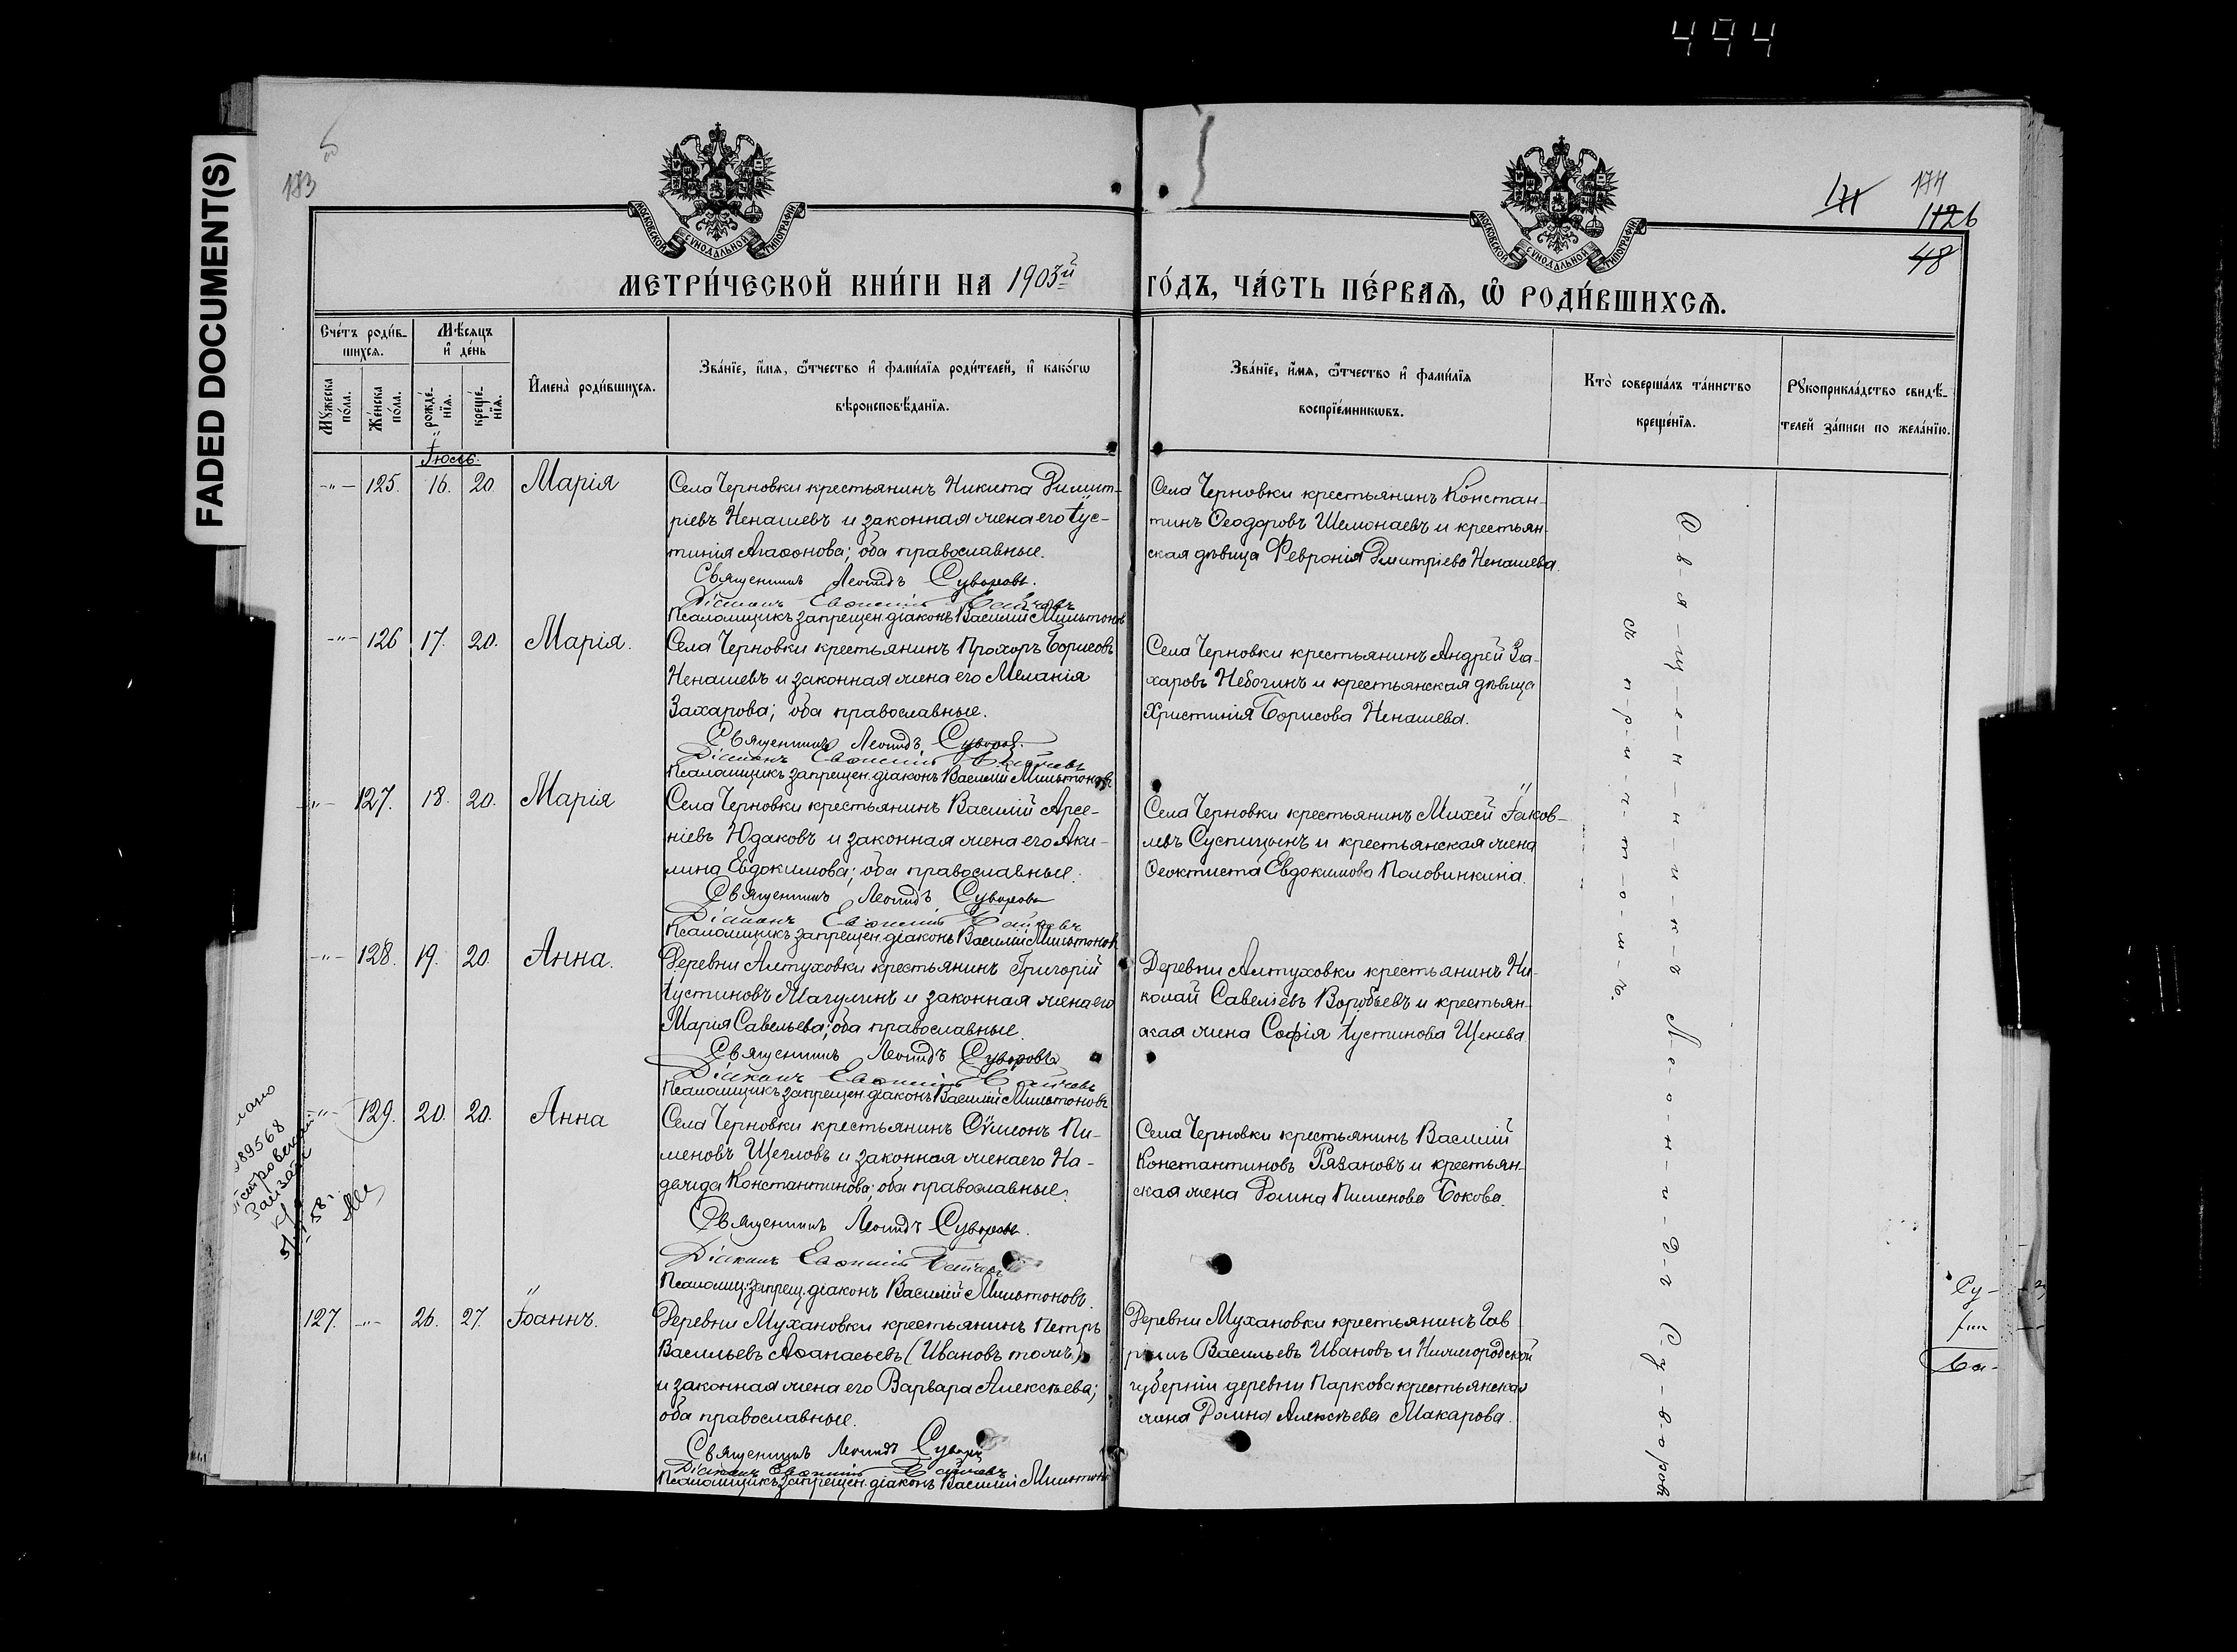 494
FADED DOCUMENT(S)
183
171
174
1126
48
МОСКОВСКОЙ СѴНОДАЛЬНОЙ ТИПОГРАФІИ
МОСКОВСКОЙ СѴНОДАЛЬНОЙ ТИПОГРАФІИ
МЕТРИ́ЧЕСКОЙ КНИ́ГИ НА 1903й ГО́ДЪ, ЧА́СТЬ ПЕ́РВАЯ, Ѡ҆ РОДИ́ВШИХСЯ.
Сче́тъ роди́в-
шихся.
Мѣсяцъ
и҆ де́нь
Мꙋжеска по́ла.
Же́нска по́ла.
рожде́-
нїя.
креще́-
нїя.
И҆мена̀ роди́вшихся.
Зва́нїе, и҆́мя, ѻ҆́тчество и҆ фами́лїя роди́телей, и҆ како́гѡ
вѣроисповѣ́данїя.
Зва́нїе, и҆́мя, ѻ҆́тчество и҆ фами́лїя
воспрїе́мникѡвъ.
Кто̀ соверша́лъ та́инство
креще́нїя.
Рꙋкоприкла́дство свидѣ́-
телей за́писи по жела́нїю.
Іюль.
-"- 125. 16. 20. Марія
Села Черновки крестьянинъ Никита Димит-
ріевъ Ненашевъ и законная жена его Іус-
тинія Агаѳонова; оба православные.
Священникъ Леонидъ Суворовъ.
Діаконъ Евѳимій
Псаломщикъ запрещен. діаконъ Василій Мильтоновъ
Села Черновки крестьянинъ Констан-
тинъ Ѳеодоровъ Шелонаевъ и крестьян-
ская дѣвица Феврокія Димитріева Ненашева.
-"- 126 17. 20. Марія.
Села Черновки крестьянинъ Прохоръ Борисовъ
Ненашевъ и законная жена его Меланія
Захарова; оба православные.
Священникъ Леонидъ Суворовъ.
Діаконъ Евѳимій
Псаломщикъ запрещен. діаконъ Василій Мильтоновъ.
Села Черновки крестьянинъ Андрей За-
харовъ Небогинъ и крестьянская дѣвица
Христинія Борисова Ненашева.
-"- 127. 18. 20. Марія
Села Черновки крестьянинъ Василій Арсе-
ніевъ Юдаковъ и законная жена его Аки-
лина Евдокимова; оба православные.
Священникъ Леонидъ Суворовъ
Діаконъ Евѳимій
Псаломщикъ запрещен. діаконъ Василій Мильтоновъ
Села Черновки крестьянинъ Михей Іаков-
левъ Суспицынъ и крестьянская жена
Ѳеоктиста Евдокимова Половинкина.
-"- 128. 19. 20. Анна.
Деревни Алтуховки крестьянинъ Григорій
Іустиновъ Мачулинъ и законная жена его
Марія Савельева; оба православные.
Священникъ Леонидъ Суворовъ
Діаконъ Евѳимій
Псаломщикъ запрещен. діаконъ Василій Мильтоновъ
Деревни Алтуховки крестьянинъ Ни-
колай Савеліевъ Воробьевъ и крестьян-
ская жена Софія Іустинова Щенева.
-"- 129. 20. 20. Анна
Села Черновки крестьянинъ Сѵмеонъ Пи-
меновъ Щегловъ и законная жена его На-
дежда Константинова; оба православные.
Священникъ Леонидъ Суворовъ.
Діаконъ Евѳимій
Псаломщ. запрещ. діаконъ Василій Мильтоновъ.
Села Черновки крестьянинъ Василій
Константиновъ Рязановъ и крестьян-
ская жена Домна Пименова Бокова.
127. -"- 26. 27. Іоаннъ.
Деревни Мухановки крестьянинъ Петръ
Васильевъ Аѳанасьевъ (Ивановъ тожъ)
и законная жена его Варвара Алексѣева;
оба православные.
Священникъ Леонидъ
Діаконъ Евѳимій
Псаломщикъ запрещен. діаконъ Василій Мильтонов
Деревни Мухановки крестьянинъ Гав-
ріилъ Васильевъ Ивановъ и Нижегородской
губерніи деревни Паркова крестьянская
жена Домна Алексѣева Макарова.
С-в-я-щ-е-н-н-и-к-ъ Л-е-о-н-и-д-ъ С-у-в-о-ровъ
съ п-р-и-ч-т-о-м-ъ.